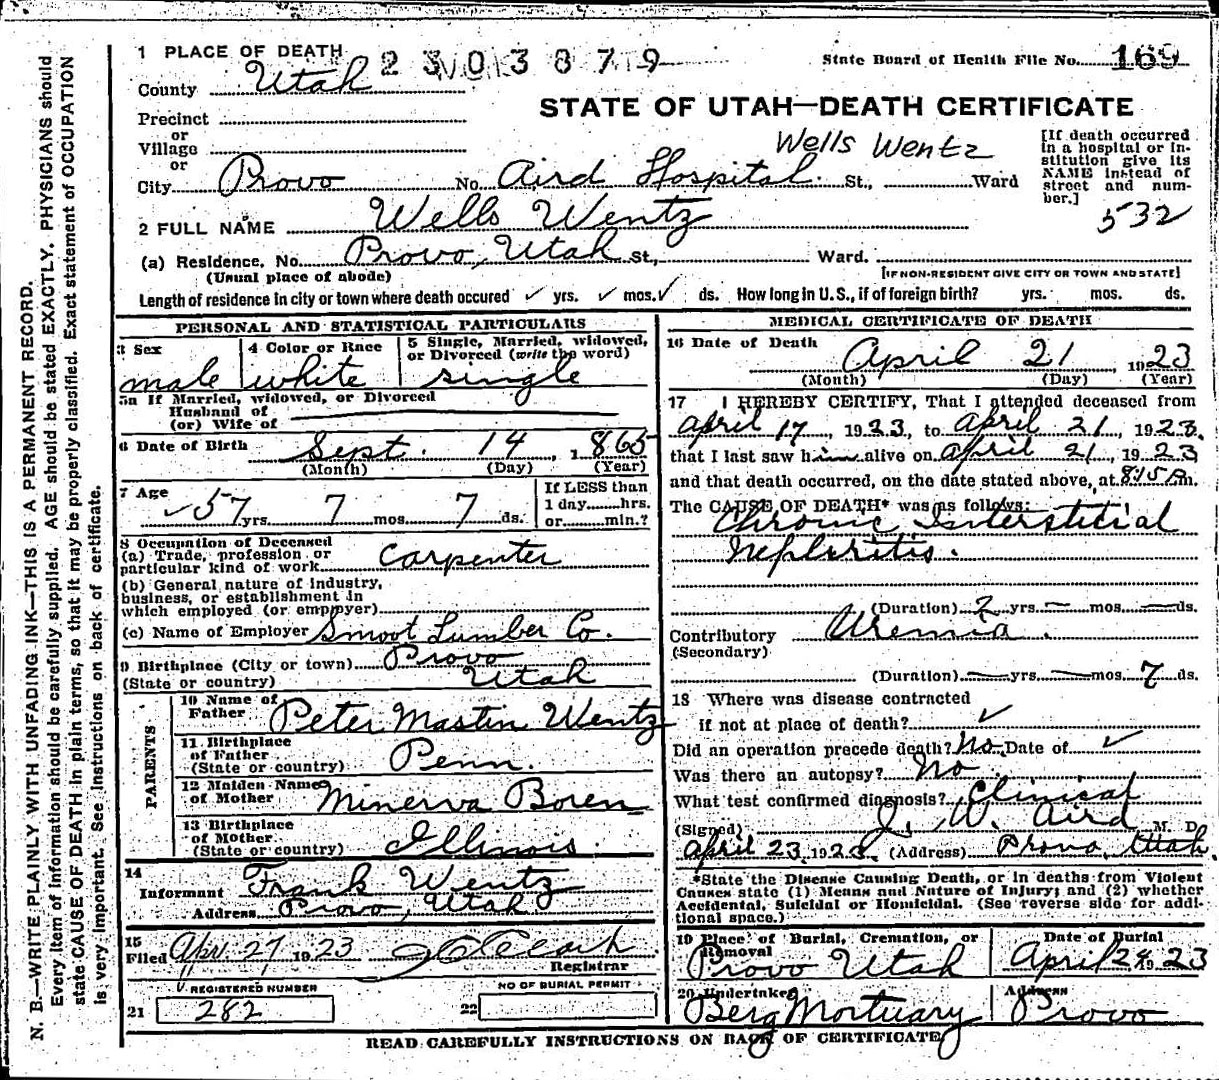 N. B.—WRITE PLAINLY WITH UNFADING INK—THIS IS A PERMANENT RECORD.
Every item of information should be carefully supplied. AGE should be stated EXACTLY. PHYSICIANS should
state CAUSE OF DEATH in plain terms, so that it may be properly classified. Exact statement of OCCUPATION
is very important. See instructions on back of certificate.
1 PLACE OF DEATH 2303879 State Board of Health File No. 169
County Utah
STATE OF UTAH—DEATH CERTIFICATE
Precinct
or
Village
or
Wells Wentz
[If death occurred
in a hospital or in-
stitution give its
NAME instead of
street and num-
ber.]
City Provo No. Aird Hospital St., Ward
532
2 FULL NAME Wells Wentz
(a) Residence, No. Provo, Utah St., Ward.
(Usual place of abode) [IF NON-RESIDENT GIVE CITY OR TOWN AND STATE]
Length of residence in city or town where death occured ✓ yrs. ✓ mos. ✓ ds. How long in U.S., if of foreign birth? yrs. mos. ds.
PERSONAL AND STATISTICAL PARTICULARS
3 Sex
male
4 Color or Race
white
5 Single, Married, widowed,
or Divorced (write the word)
single
5a If Married, widowed, or Divorced
Husband of
(or) Wife of
6 Date of Birth Sept. 14, 1865
(Month) (Day) (Year)
7 Age
✓ 57 yrs. 7 mos. 7 ds.
If LESS than
1 day......hrs.
or......min.?
8 Occupation of Deceased
(a) Trade, profession or
particular kind of work Carpenter
(b) General nature of industry,
business, or establishment in
which employed (or employer)
(c) Name of Employer Smoot Lumber Co.
9 Birthplace (City or town) Provo
(State or country) Utah
PARENTS
10 Name of
Father Peter Mastin Wentz
11 Birthplace
of Father
(State or country) Penn.
12 Maiden Name
of Mother Minerva Boren
13 Birthplace
of Mother
(State or country) Illinois.
14
Informant Frank Wentz
Address Provo, Utah
15
Filed Apr. 27 1923
Registrar
REGISTERED NUMBER
21 282
NO OF BURIAL PERMIT
22
MEDICAL CERTIFICATE OF DEATH
16 Date of Death April 21, 1923
(Month) (Day) (Year)
17 I HEREBY CERTIFY, That I attended deceased from
April 17, 1923, to April 21, 1923.
that I last saw him alive on April 21, 1923
and that death occurred, on the date stated above, at 8:15 P.m.
The CAUSE OF DEATH* was as follws:
Chronic Interstitial
Nephritis.
(Duration) 2 yrs. — mos. — ds.
Contributory Uremia.
(Secondary)
(Duration) — yrs. — mos. 7 ds.
18 Where was disease contracted
if not at place of death? ✓
Did an operation precede death? No. Date of ✓
Was there an autopsy? No
What test confirmed diagnosis? Clinical
(Signed) J. W. Aird M. D.
April 23, 1923. (Address) Provo, Utah.
*State the Disease Causing Death, or in deaths from Violent
Causes state (1) Means and Nature of Injury; and (2) whether
Accidental, Suicidal or Homicidal. (See reverse side for addi-
tional space.)
19 Place of Burial, Cremation, or
Removal
Provo Utah
Date of Burial
April 24 1923
20 Undertaker
Berg Mortuary
Address
Provo
READ CAREFULLY INSTRUCTIONS ON BACK OF CERTIFICATE